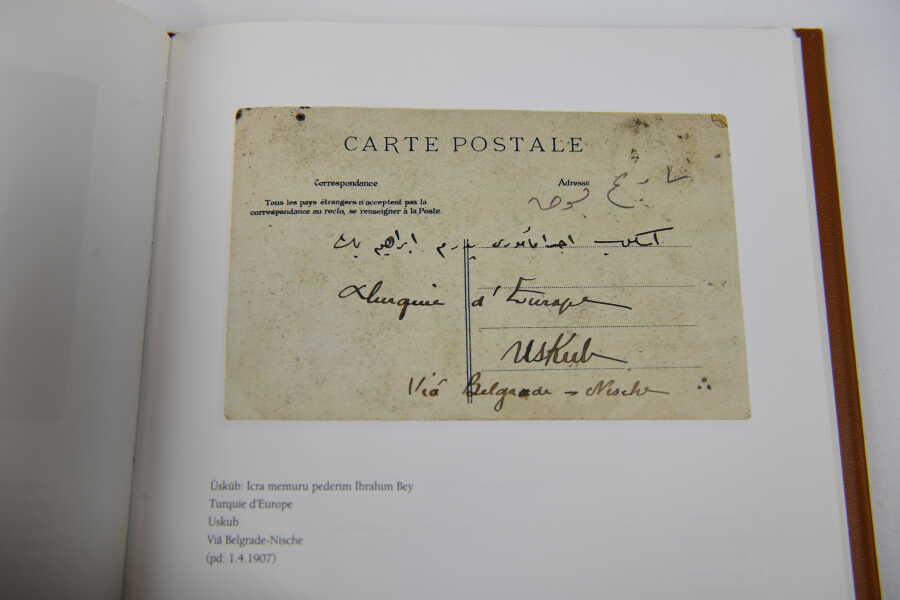 CARTE POSTALE
Correspondance
Adresse
Tous les pays étrangers n'acceptent pas la
correspondance au recto, se renseigner à la Poste.
اسكوب اجرا مأموری پدرم ابراهيم بك
Turquie d'Europe
Uskub
Viâ Belgrade - Nische
Üsküb: Icra memuru pederim Ibrahim Bey
Turquie d'Europe
Uskub
Viâ Belgrade-Nische
(pd: 1.4.1907)